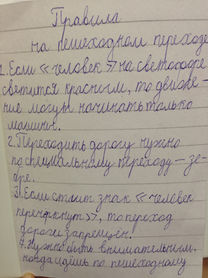 Правила
на пешеходном переходе
1. Если « человек » на светофоре
светится красным, то движе-
ние могут начинать только
машины.
2. Переходить дорогу нужно
по специальному переходу – зе-
бре.
3) Если стоит знак « человек
перечеркнут », то переход
дороги запрещен.
4. Нужно быть внимательным,
когда идёшь по пешеходному